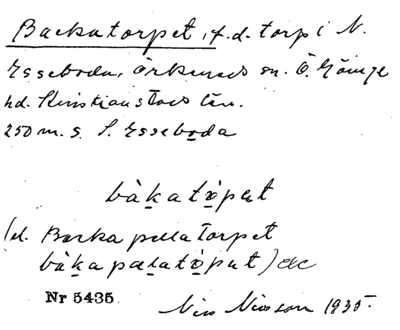 Backatorpet, f.d. torp i N.
Esseboda, Örkeneds sn. Ö. Göinge
hd. Kristianstads län.
250 m. s. S. Esseboda
bàkatòpət
(el. Backapellatorpet
bàkapælatòpət)
Nr 5435.
Nils Nilsson 1935.